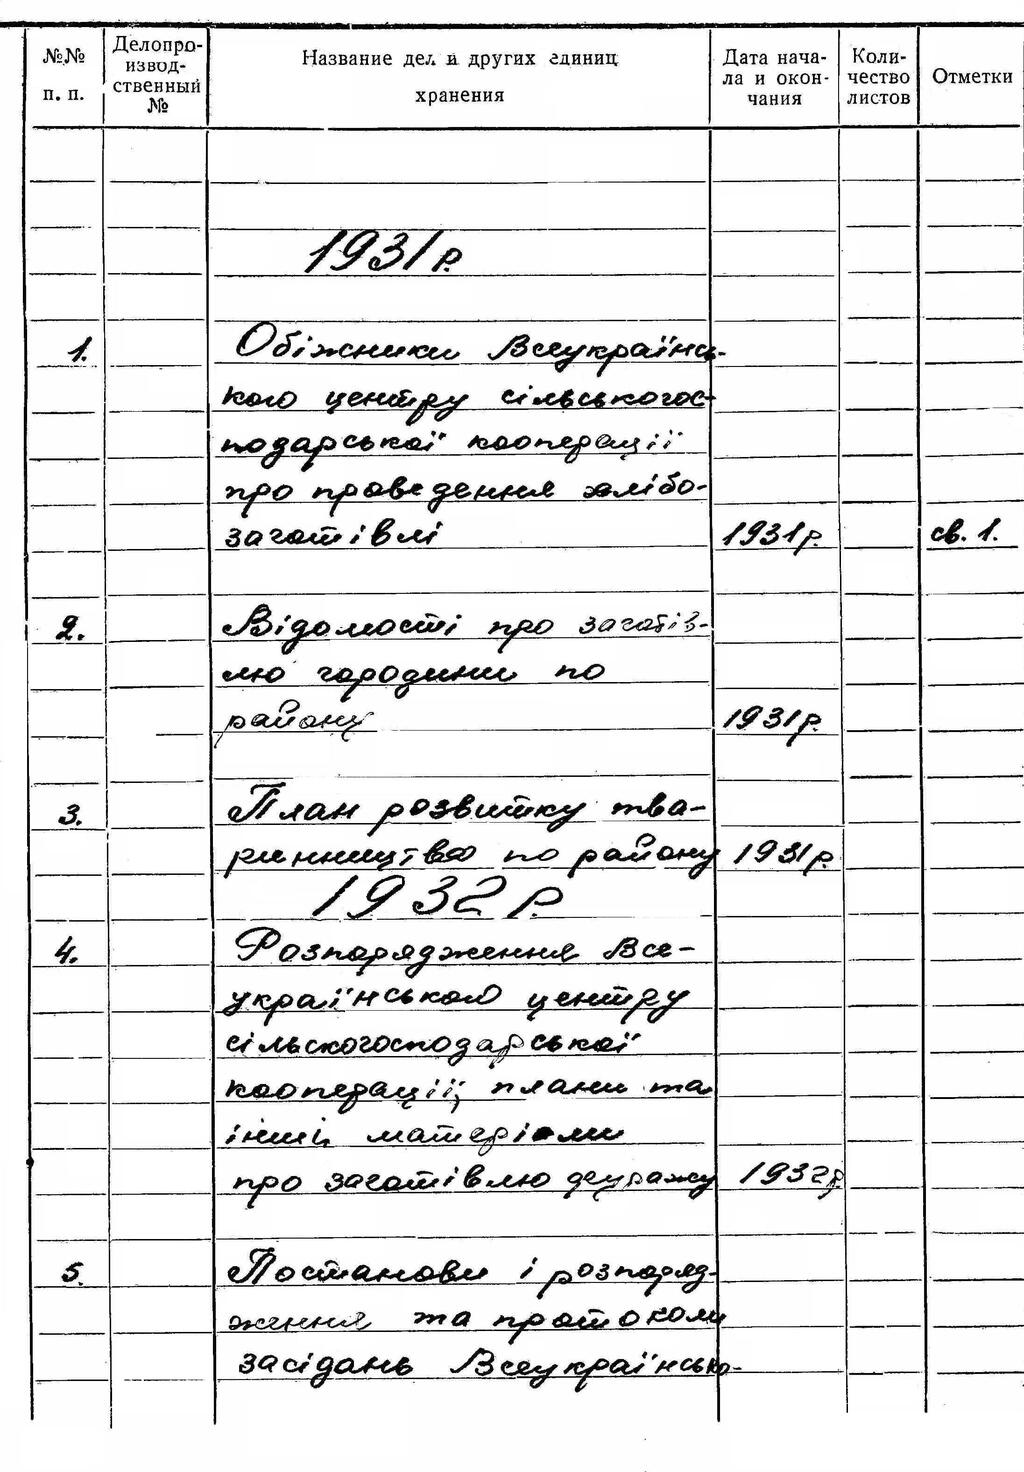 №№ п. п.
Делопро-
извод-
ственный
№
Название дел и других единиц
хранения
Дата нача-
ла и окон-
чания
Коли-
чество
листов
Отметки
1931 р.
1. Обіжники Всеукраїнсь-
кого центру сільськогос-
подарської кооперації
про проведення хлібо-
заготівлі 1931 р. св. 1.
2. Відомості про загатів-
лю городини по
району 1931 р.
3. План розвитку тва-
ринництва по району 1931 р.
1932 р.
4. Розпорядження Все-
українського центру
сільскогосподарської
кооперації, плани та
інші матеріали
про заготівлю фуражу 1932 р.
5. Постанови і розпоряд-
ження та протоколи
засідань Всеукраїнсько-